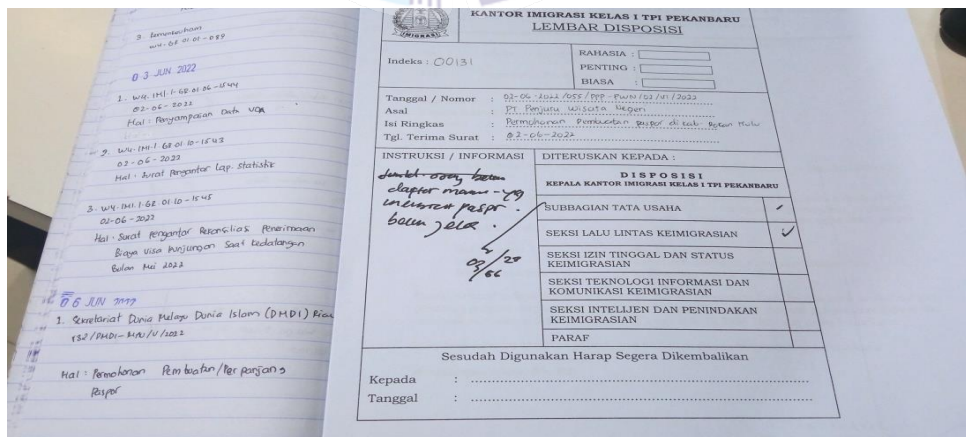 3.
W4-68 01 01 - 089
0 3 JUN 2022
1. W4.IMI.1-68.01.06-1544
02-06-2022
Hal : Penyampaian Data
2. W4-IMI-1 68 01 10-1543
02-06-2022
Hal : Surat Pengantar Lap. Statistik
3. W4-IMI.1.68 01 10-1545
02-06-2022
Hal : Surat Pengantar Rekonsiliasi Penerimaan
Biaya Visa Kunjungan Saat Kedatangan
Bulan Mei 2022
0 6 JUN 2022
1. Sekretariat Dunia Melayu Dunia Islam (DMDI) Riau
/DMDI- /V/2022
Hal : Permohonan Pembuatan/Perpanjang
Paspor
IMIGRASI
KANTOR IMIGRASI KELAS I TPI PEKANBARU
LEMBAR DISPOSISI
Indeks : 00131
RAHASIA :
PENTING :
BIASA :
Tanggal / Nomor : 02-06-2022 /055/PPP-PWN/02/VI/2022
Asal : PT. Penjuru Wisata Negeri
Isi Ringkas : Permohonan Pembuatan Paspor di kab. Rokan Hulu
Tgl. Terima Surat : 02-06-2022
INSTRUKSI / INFORMASI
DITERUSKAN KEPADA :
daptar yg
paspr.
belum jelas.
DISPOSISI
KEPALA KANTOR IMIGRASI KELAS I TPI PEKANBARU
SUBBAGIAN TATA USAHA
SEKSI LALU LINTAS KEIMIGRASIAN ✓
SEKSI IZIN TINGGAL DAN STATUS
KEIMIGRASIAN
SEKSI TEKNOLOGI INFORMASI DAN
KOMUNIKASI KEIMIGRASIAN
SEKSI INTELIJEN DAN PENINDAKAN
KEIMIGRASIAN
PARAF
Sesudah Digunakan Harap Segera Dikembalikan
Kepada : ........................................
Tanggal : ........................................